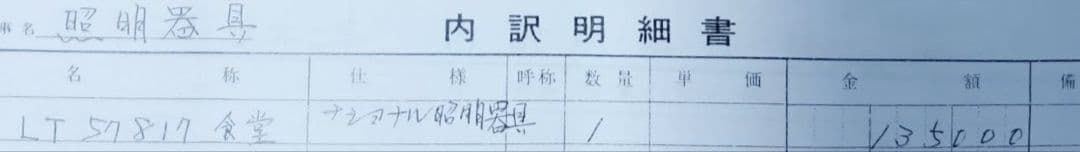 名 照明器具 内訳明細書
名称 仕様 呼称 数量 単価 金額 備
LT57817 食堂 ナショナル照明器具 1 135000